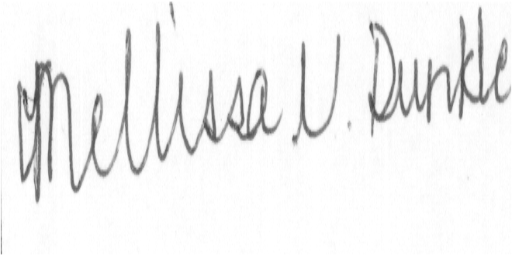 Mellissa V. Dunkle